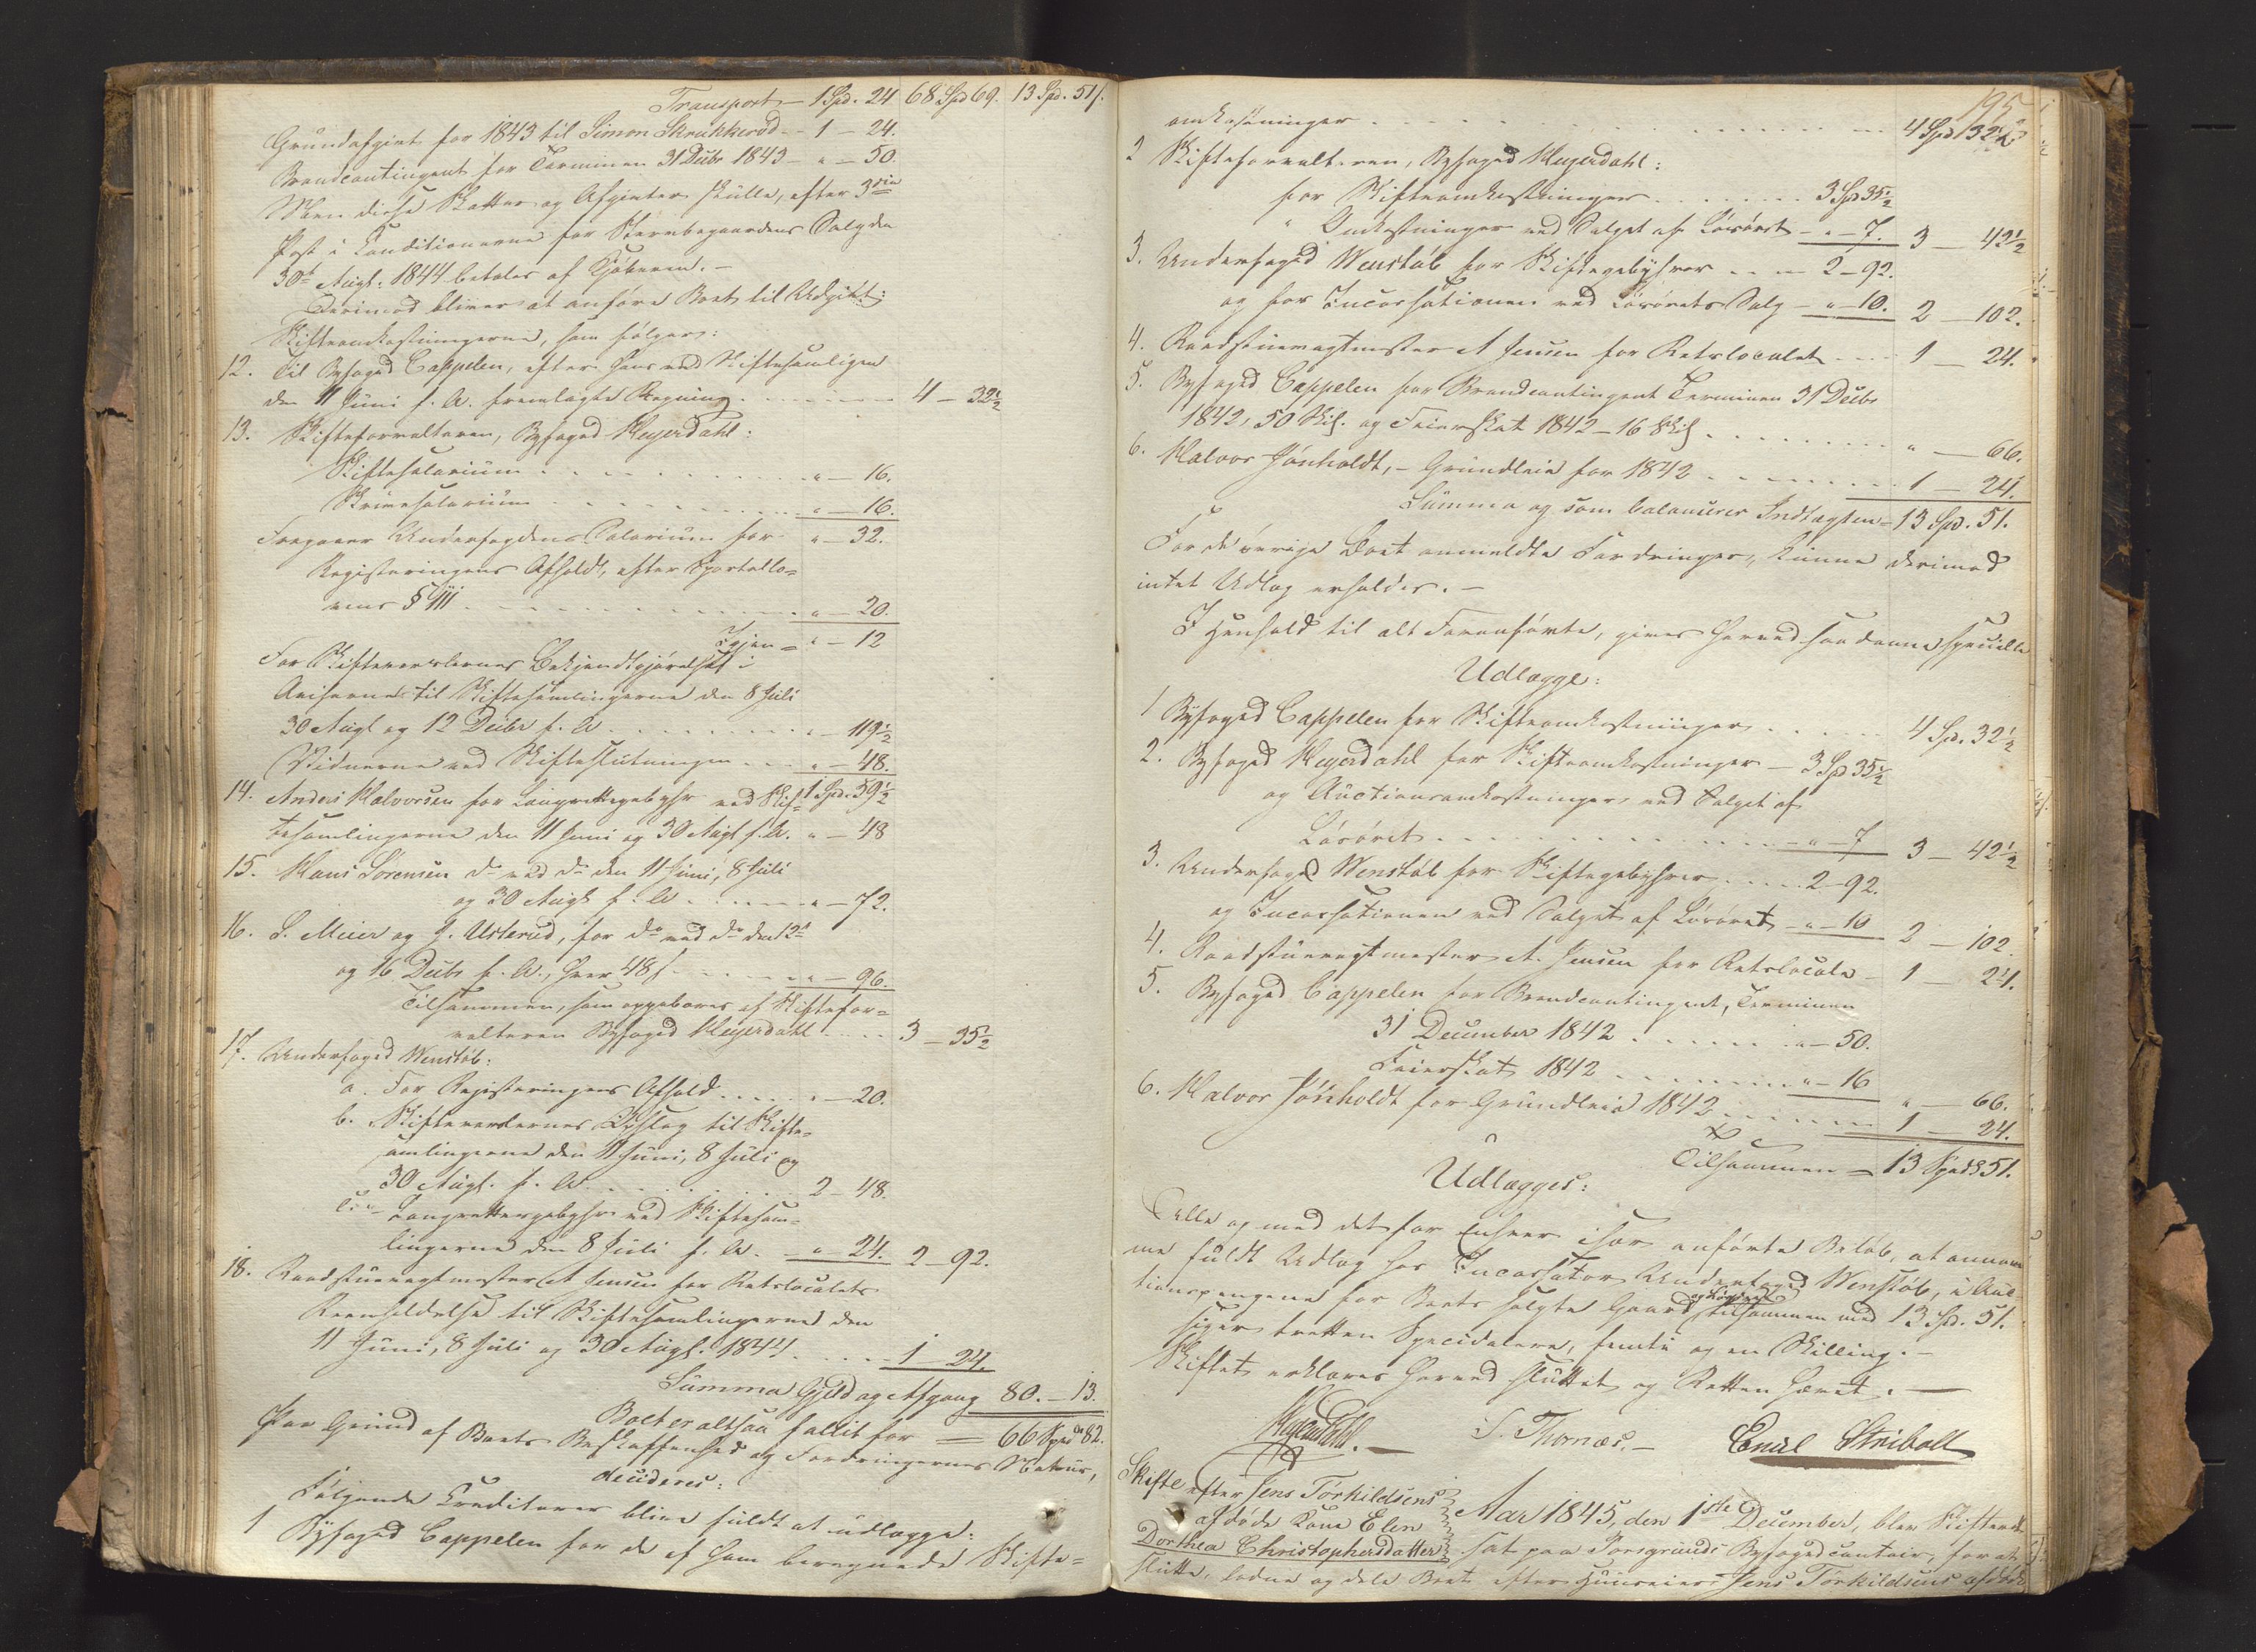 Transport — 1 Spd. 24 68 Spd 69. 13 Spd. 51 ſ.
Grundafgivt for 1843 til Simon Skrukkerød - 1 - 24.
Brandcontingent for Terminen 31 Decbr 1843 - " - 50.
Men disse Skatter og Afgivter skulle, efter 3die
Post i Conditionerne for Stervbogaardens Salg den
30te Augt. 1844 betales af Kjøberen. -
Derimod bliver at anføre Boet til Udgivt:
Skifteomkostningerne, som følger:
12. Til Byfoged Cappelen, efter hans ved Skiftesamlingen
den 11 Juni f. A. fremlagte Regning 4 - 32½
13. Skifteforvalteren, Byfoged Heyerdahl:
Skiftesalarium " - 16.
Skriversalarium " - 16.
" - 32.
Fragaaer Underfogdens Salarium for
Registeringens Afholdt, efter Sportello-
vens § 111 " - 20.
Igjen = " - 12
For Skifteværslernes Bekjendtgjørelse i
Aviserne til Skiftesamlingerne den 8 Juli
30 Augt og 12 Decbr f. A. " - 119½
Vidnerne ved Skifteslutningen " - 48.
1 Spd. 59½
14. Anders Halvorsen for Laugrettegebyhr ved Skif-
tesamlingerne den 11 Juni og 30 Augt f. A. " - 48
15. Hans Sørensen do ved do den 11 Juni, 8 Juli
og 30 Augt f. A. " - 72.
16. S. Meier og J. Usterud, for do ved do den 12te
og 16 Decbr f. A., hver 48 ſ " - 96.
Tilsammen, som oppebæres af Skiftefor-
valteren Byfoged Heyerdahl 3 - 35½
17. Underfoged Wenstøb:
a. For Registeringens Afhold " - 20.
b. Skifteværslernes Opslag til Skifte-
samlingerne den 11 Juni, 8 Juli og
30 Augt. f. A. 2 - 48.
c. Laugrettergebyhr ved Skiftesam-
lingerne den 8 Juli f. A. - " - 24. 2 - 92.
18. Raadstuevagtmester A Jensen for Retslocalets
Reenholdelse til Skiftesamlingerne den
11 Juni, 8 Juli og 30 Augt. 1844 1 24.
Summa Gjeld og Afgang 80. - 13.
Boet er altsaa fallit for = 66 Spd 82.
Paa Grund af Boets Beskaffenhed og Fordringernes Natur,
decideres:
Følgende Creditorer blive fuldt at udlægge:
1 Byfoged Cappelen for de af ham beregnede Skifte-
195
omkostninger 4 Spd 32½
2 Skifteforvalteren, Byfoged Heyerdahl:
for Skifteomkostninger 3 Spd 35½
" Omkostninger ved Salget af Løsøret - " - 7. 3 - 42½
3. Underfoged Wenstøb for Skiftegebyhrer 2 - 92.
og for Incassationen ved Løsørets Salg - " - 10. 2 - 102.
4. Raadstuevagtmester A Jensen for Retslocalet 1 - 24.
5. Byfoged Cappelen for Brandcontingent Terminen 31 Decbr
1842, 50 Skil. og Feierskat 1842 - 16 Skil " - 66.
6. Halvor Jønholdt, - Grundleie for 1842 1 - 24.
Summa og som balancerer Indtægten = 13 Spd. 51.
For de øvrige Boet anmeldte Fordringer, kunne derimod
intet Udlæg erholdes. -
I Henhold til alt Foranførte, gives herved saadanne specielle
Udlægge:
1 Byfoged Cappelen for Skifteomkostninger 4 Spd. 32½
2. Byfoged Heyerdahl for Skifteomkostninger - 3 Spd 35½
og Auctionsomkostninger ved Salget af
Løsøret - " - 7 3 - 42½
3. Underfoged Wenstøb for Skiftegebyhrer 2 - 92.
og Incassationen ved Salget af Løsøret - " - 10 2 - 102.
4. Raadstuevagtmester A. Jensen for Retslocale - 1 - 24.
5. Byfoged Cappelen for Brandcontingent, Terminen
31 December 1842 " - 50.
Feierskat 1842 " - 16 " - 66.
6. Halvor Jønholdt for Grundleie 1842 1 - 24.
Tilsammen = 13 Spd 51.
Udlægges:
Alle og med det for Enhver især anførte Beløb, at annam-
me fuldt Udlæg hos Incassator Underfoged Wenstøb, i Auc-
tionspengene for Boets solgte Gaard og Løsøre tilsammen med 13 Spd. 51.
siger tretten Speciedalere, femti og en Skilling. -
Skiftet erklæres herved sluttet og Retten hævet. -
Heyerdahl. - S. Thomæs. - Emil Stribolt
Skifte efter Jens Torkildsens
afdøde Kone Elen
Dorthea Christophersdatter
Aar 1845, den 1ste December, blev Skifteret
sat paa Porsgrunds Byfogedcontoir, for at
slutte, lodne og dele Boet efter Huuseier Jens Torkildsens afdøde